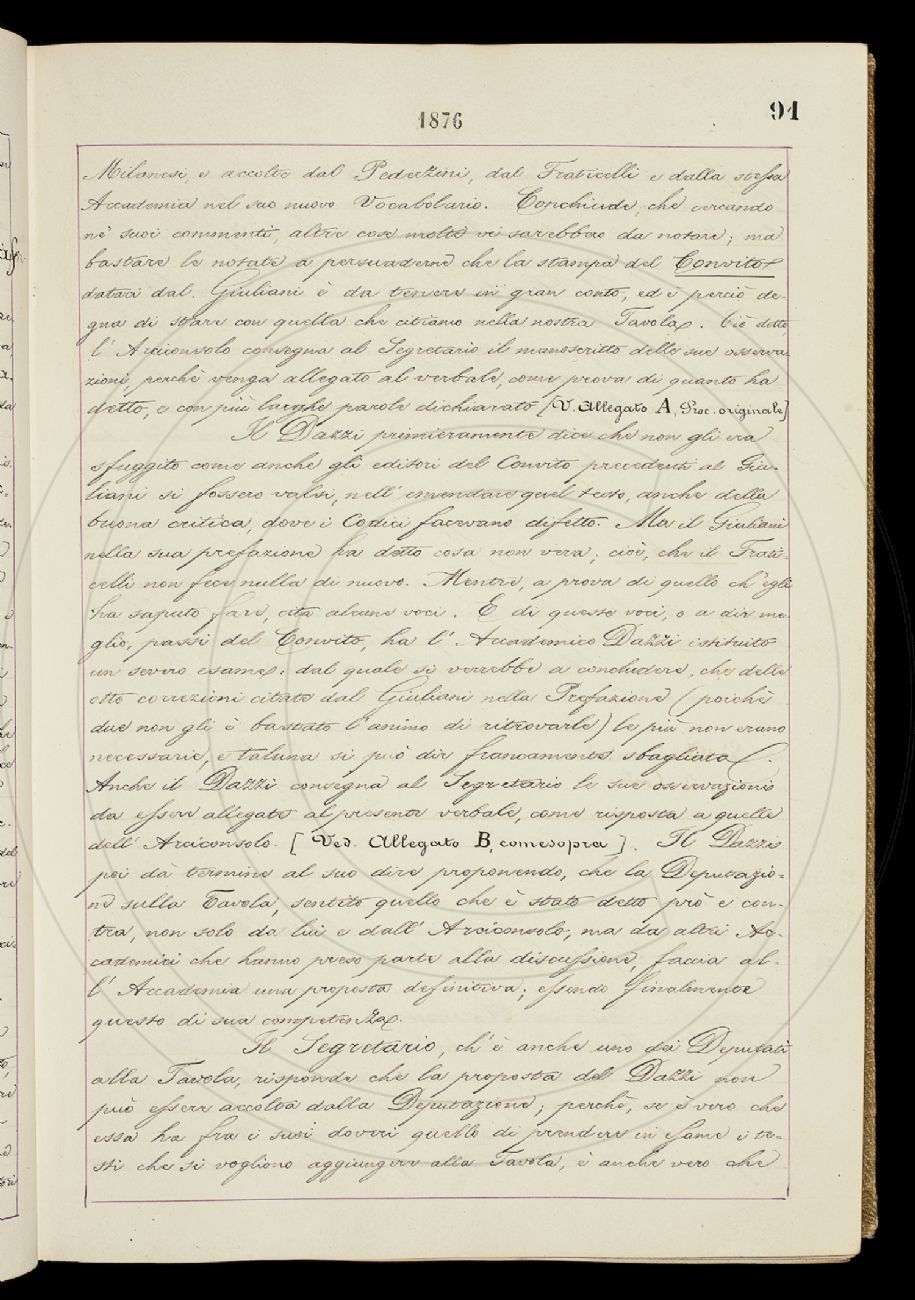 1876
91
Milanesi, e accolte dal Pederzini, dal Fraticelli e dalla stessa
Accademia nel suo nuovo Vocabolario. Conchiude, che cercando
ne' suoi commenti, altre cose molte vi sarebbero da notare; ma
bastare le notate a persuaderne che la stampa del Convito
dataci dal Giuliani è da tenere in gran conto, ed è perciò de-
gna di stare con quella che citiamo nella nostra Tavola. Ciò detto
l'Arciconsolo consegna al Segretario il manoscritto delle sue osserva
zioni, perchè venga allegato al verbale, come prova di quanto ha
detto, e con più larghe parole dichiarato [V. Allegato A, Proc. originale]
Il Dazzi primieramente dice che non gli era
sfuggito come anche gli editori del Convito precedenti al Giu-
liani si fossero valsi, nell'emendare quel testo, anche della
buona critica, dove i Codici facevano difetto. Ma il Giuliani
nella sua prefazione ha detto cosa non vera; cioè, che il Frati-
celli non fece nulla di nuovo. Mentre, a prova di quello ch'egli
ha saputo fare, cita alcune voci. E di queste voci, o a dir me
glio, passi del Convito, ha l'Accademico Dazzi istituito
un severo esame: dal quale si verrebbe a conchiudere, che delle
otto correzioni citate dal Giuliani nella Prefazione (poichè
due non gli è bastato l'animo di ritrovarle) le più non erano
necessarie, e taluna si può dir francamente sbagliata.
Anche il Dazzi consegna al Segretario le sue osservazioni
da essere allegate al presente verbale, come risposta a quelle
dell'Arciconsolo. [Ved. Allegato B, come sopra]. Il Dazzi
poi dà termine al suo dire proponendo, che la Deputazio-
ne sulla Tavola, sentito quello che è stato detto prò e con-
tra, non solo da lui e dall'Arciconsolo, ma da altri Ac-
cademici che hanno preso parte alla discussione, faccia al-
l'Accademia una proposta definitiva; essendo finalmente
questo di sua competenza.
Il Segretario, ch'è anche uno dei Deputati
alla Tavola, risponde che la proposta del Dazzi non
può essere accolta dalla Deputazione; perchè, se è vero che
essa ha fra i suoi doveri quello di prendere in esame i te-
sti che si vogliono aggiungere alla Tavola, è anche vero che